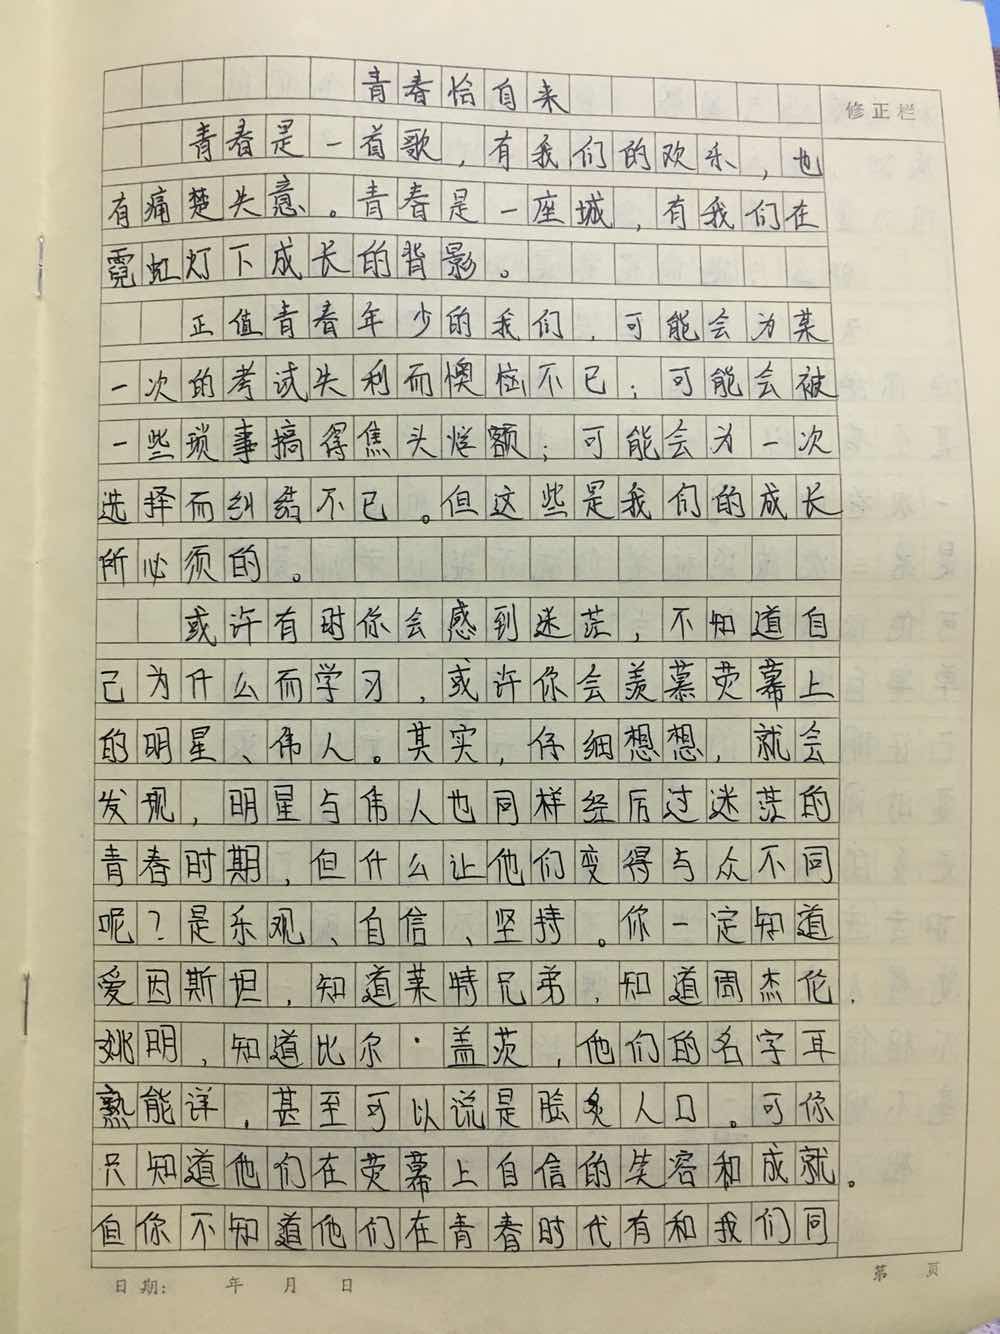 青春恰自来
修正栏
青春是一首歌，有我们的欢乐，也
有痛楚失意。青春是一座城，有我们在
霓虹灯下成长的背影。
正值青春年少的我们，可能会为某
一次的考试失利而懊恼不已；可能会被
一些琐事搞得焦头烂额；可能会为一次
选择而纠结不已。但这些是我们的成长
所必须的。
或许有时你会感到迷茫，不知道自
己为什么而学习，或许你会羡慕荧幕上
的明星、伟人。其实，仔细想想，就会
发现，明星与伟人也同样经历过迷茫的
青春时期，但什么让他们变得与众不同
呢？是乐观、自信、坚持。你一定知道
爱因斯坦，知道莱特兄弟，知道周杰伦、
姚明，知道比尔·盖茨，他们的名字耳
熟能详，甚至可以说是脍炙人口。可你
只知道他们在荧幕上自信的笑容和成就。
但你不知道他们在青春时代有和我们同
日期： 年 月 日
第 页